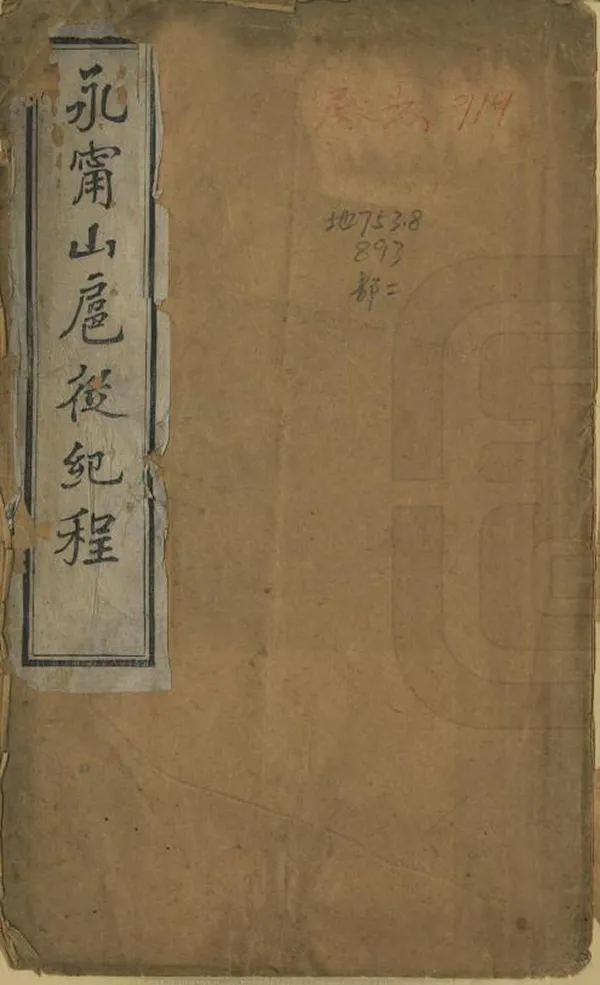 永甯山扈從紀程
919
地753.8
893
部二